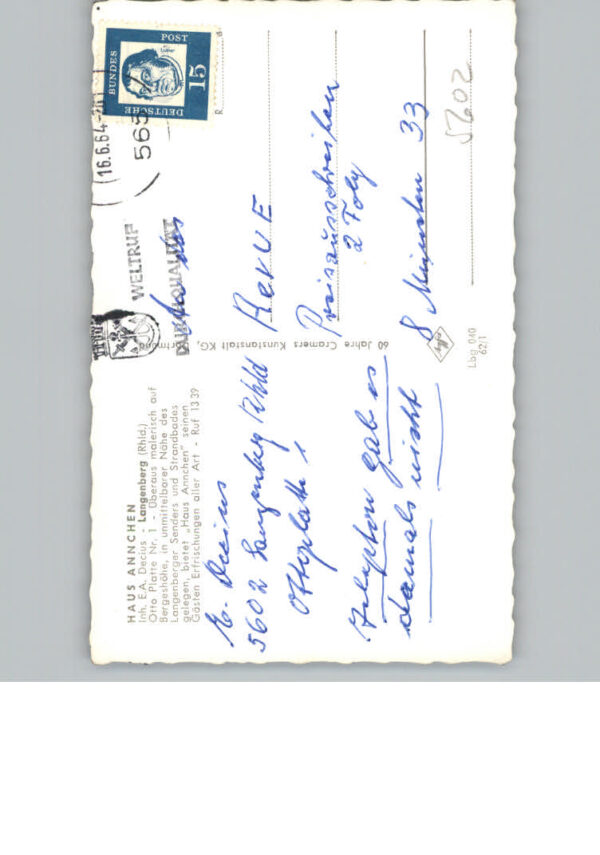 HAUS ANNCHEN
Inh. E.A. Decius - Langenberg (Rhld.)
Otto Platte Nr. 1 - Überaus malerisch auf
Bergeshöhe, in unmittelbarer Nähe des
Langenberger Senders und Strandbades
gelegen, bietet „Haus Annchen" seinen
Gästen Erfrischungen aller Art - Ruf 13 39
E. Decius
5602 Langenberg Rhld
Ottoplatte 1
Telephon gab es
damals nicht
60 Jahre Cramers Kunstanstalt KG, Dortmund
16.6.64
565
WELTRUF
DURCH QUALITÄT
DEUTSCHE
BUNDES
POST
15
An das
REVUE
Preisausschreiben
8 München 33
5602
Lbg. 040
62/1